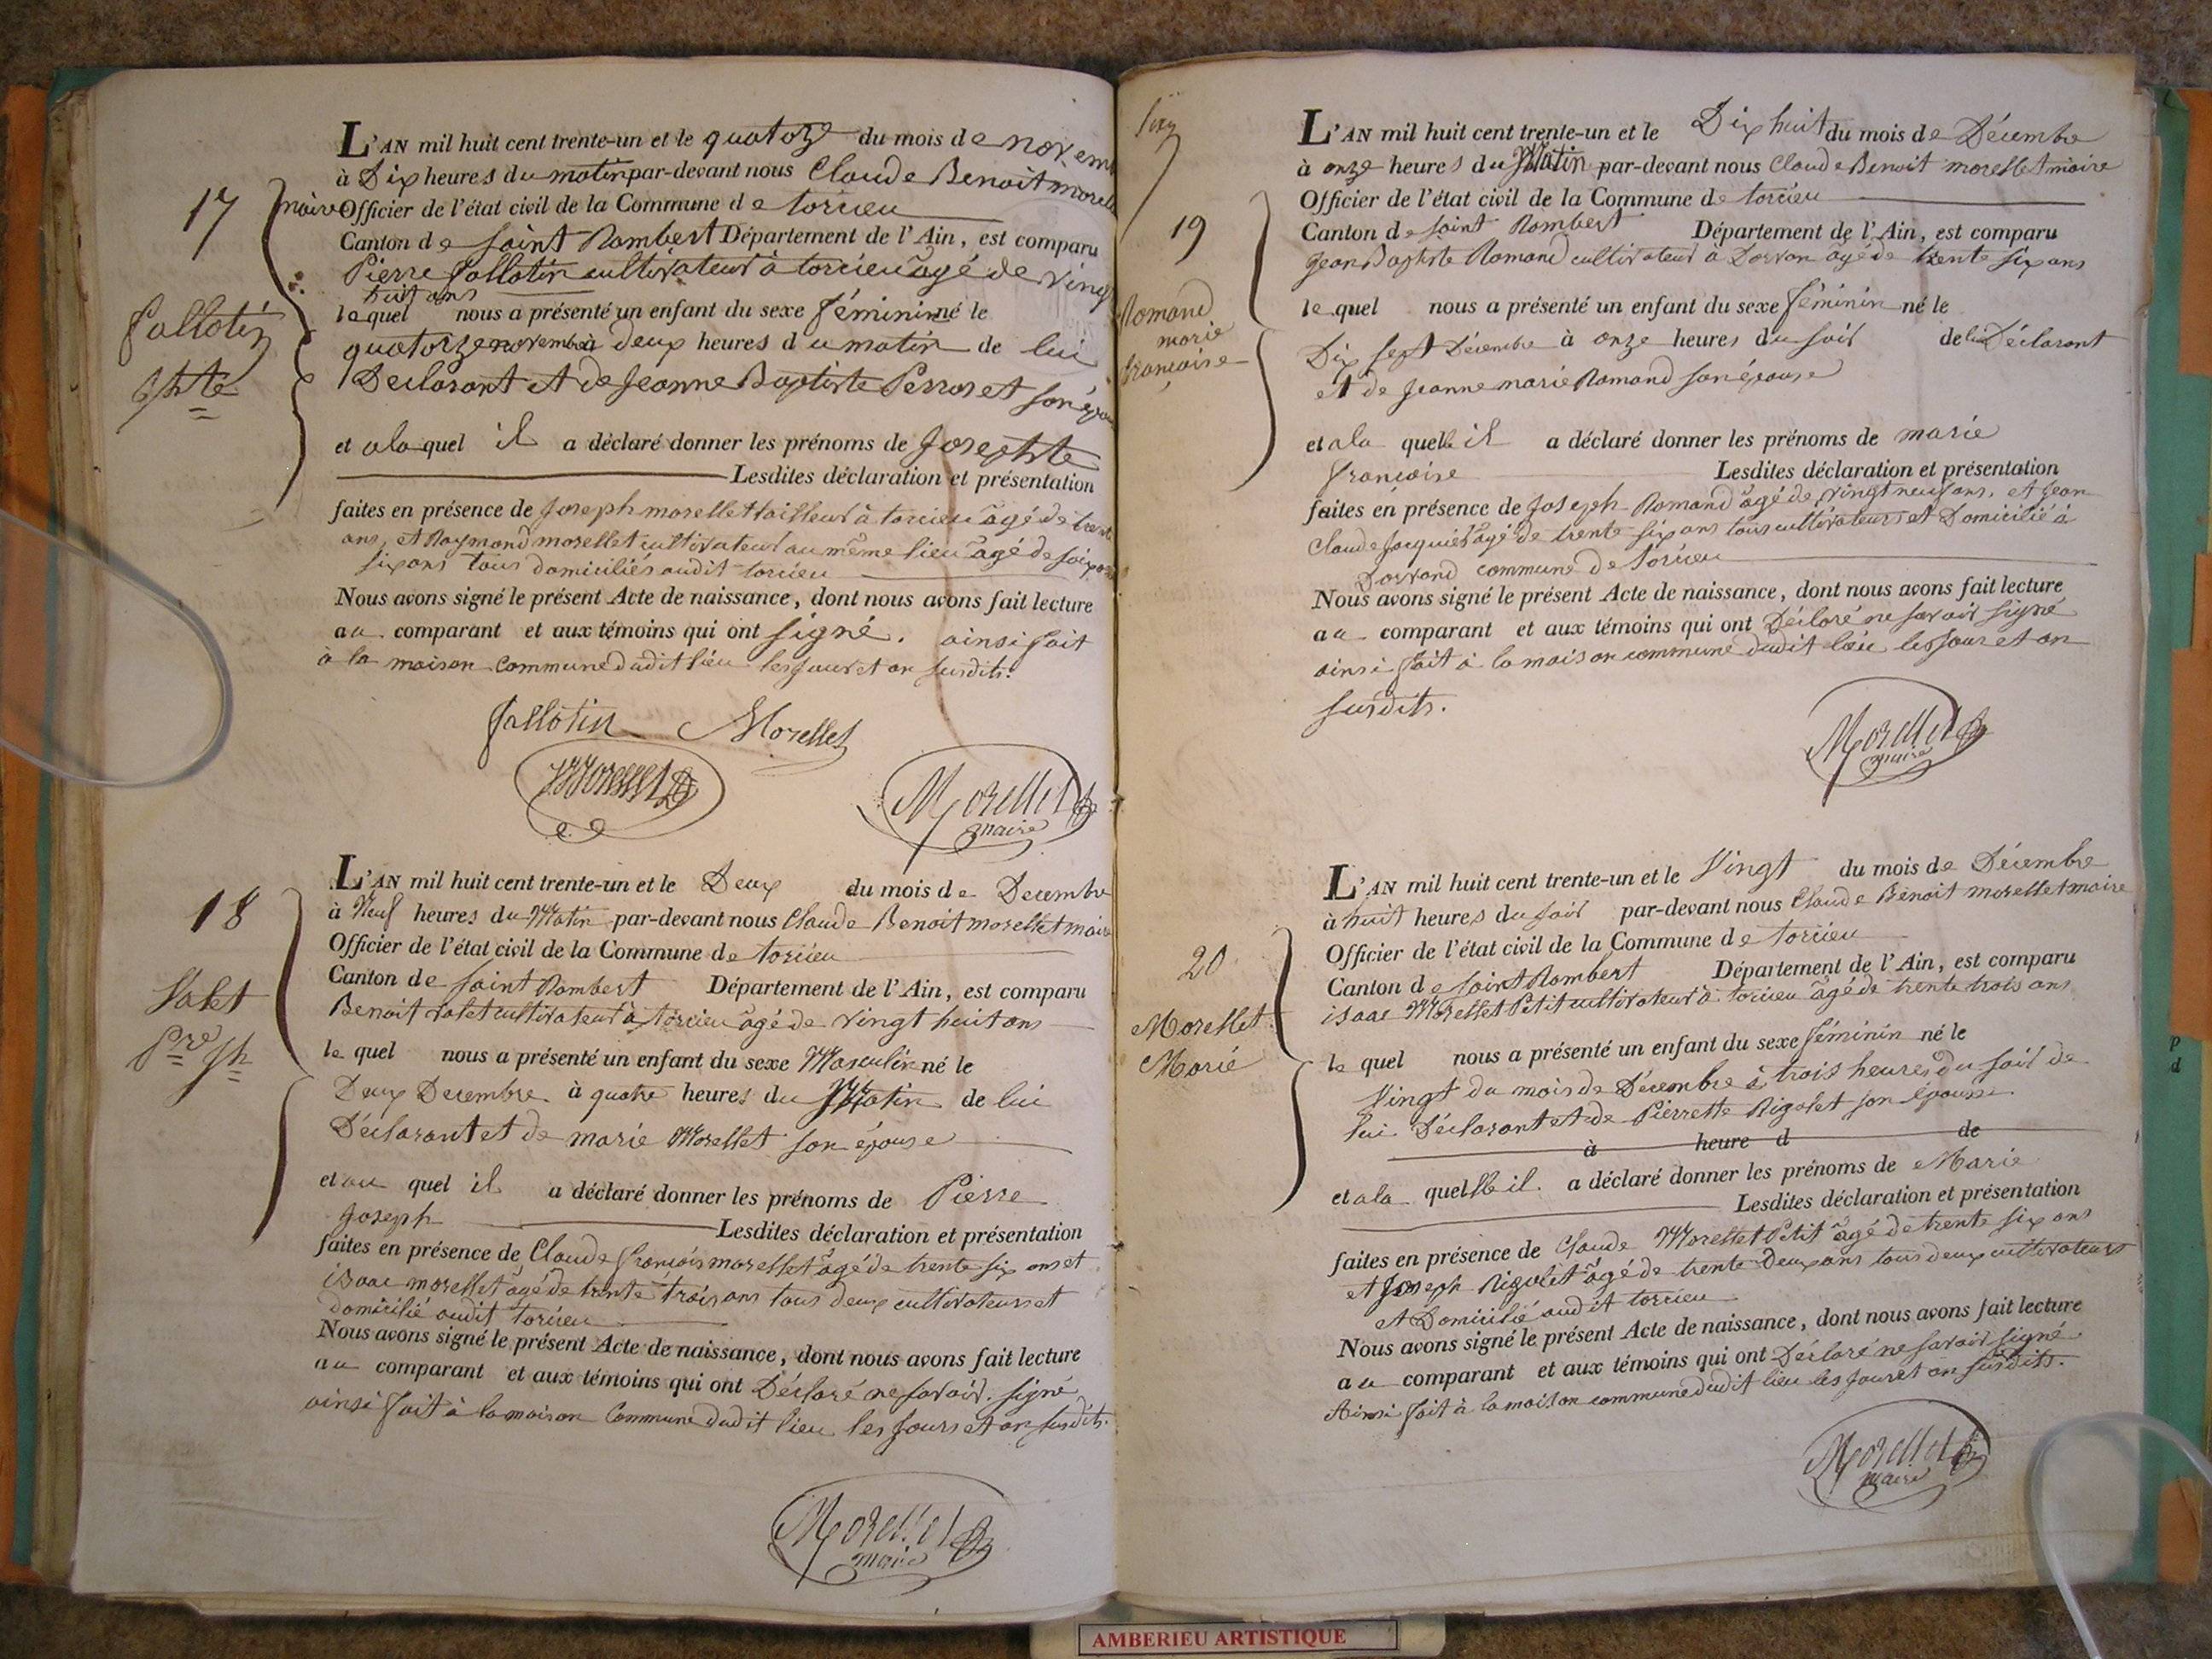 L'AN mil huit cent trente-un et le quatorze du mois de novem
à Dix heures du matin par-devant nous Claude Benoit morell
17
maire Officier de l'état civil de la Commune de torcieu
Canton de Saint Rambert Département de l'Ain, est comparu
Pierre Sallotin cultivateur à torcieu âgé de ving
huit ans
lequel nous a présenté un enfant du sexe féminin né le
Sallotin
quatorze novembre à deux heures du matin de lui
Jphte
Déclarant et de Jeanne Baptiste Perroset son épou
et a la quel il a déclaré donner les prénoms de Josephte
Lesdites déclaration et présentation
faites en présence de Joseph morellet tailleur à torcieu âgé de trent
ans, et Raymond morellet cultivateur au même lieu âgé de soixan
six ans tous domiciliés audit torcieu
Nous avons signé le présent Acte de naissance, dont nous avons fait lecture
au comparant et aux témoins qui ont signé. ainsi fait
à la maison commune dudit lieu les jour et an susdits.
Sallotin Morellet
Morellet
Morellet
maire
L'AN mil huit cent trente-un et le Deux du mois de Decembre
18
à Neuf heures du Matin par-devant nous Claude Benoit morellet maire
Officier de l'état civil de la Commune de torcieu
Canton de Saint Rambert Département de l'Ain, est comparu
Valet
Benoit valet cultivateur à torcieu âgé de vingt huit ans
Pre Jh
le quel nous a présenté un enfant du sexe Masculin né le
Deux Decembre à quatre heures du Matin de lui
Déclarant et de marie Morellet son épouse
et au quel il a déclaré donner les prénoms de Pierre
Joseph Lesdites déclaration et présentation
faites en présence de Claude françois morellet âgé de trente six ans et
isaac morellet âgé de trente trois ans tous deux cultivateurs et
domicilié audit torcieu
Nous avons signé le présent Acte de naissance, dont nous avons fait lecture
au comparant et aux témoins qui ont Déclaré ne savoir signé
ainsi fait à la maison Commune dudit lieu les jours et an susdits.
Morellet
maire
L'AN mil huit cent trente-un et le Dix huit du mois de Décembre
à onze heures du Matin par-devant nous Claude Benoit morellet maire
Officier de l'état civil de la Commune de torcieu
19
Canton de Saint Rambert Département de l'Ain, est comparu
Jean Baptiste Romand cultivateur à Dorvan âgé de trente six ans
Romand
marie
francoise
le quel nous a présenté un enfant du sexe féminin né le
Dix sept Décembre à onze heures du soir de lui Déclarant
et de Jeanne marie Romand son épouse
et a la quelle il a déclaré donner les prénoms de marie
francoise Lesdites déclaration et présentation
faites en présence de Joseph Romand âgé de vingt neuf ans, et Jean
Claude Jacquier âgé de trente six ans tous cultivateurs et Domicilié à
Dorvand commune de torcieu
Nous avons signé le présent Acte de naissance, dont nous avons fait lecture
au comparant et aux témoins qui ont Déclaré ne savoir signé
ainsi fait à la maison commune dudit lieu les Jour et an
susdits.
Morellet
maire
L'AN mil huit cent trente-un et le Vingt du mois de Décembre
à huit heures du soir par-devant nous Claude Benoit morellet maire
20
Officier de l'état civil de la Commune de torcieu
Canton de Saint Rambert Département de l'Ain, est comparu
isaac Morellet Petit cultivateur à torcieu âgé de trente trois ans
Morellet
Marie
le quel nous a présenté un enfant du sexe féminin né le
Vingt du mois de Décembre à trois heures du soir de
lui Déclarant et de Pierrette Rigolet son épouse
à heure d de
et a la quelle il a déclaré donner les prénoms de Marie
Lesdites déclaration et présentation
faites en présence de Claude Morellet Petit âgé de trente six ans
et Joseph Rigolet âgé de trente Deux ans tous deux cultivateurs
et Domicilié audit torcieu
Nous avons signé le présent Acte de naissance, dont nous avons fait lecture
au comparant et aux témoins qui ont Déclaré ne savoir signé
Ainsi fait à la maison commune dudit lieu les jour et an susdits.
Morellet
maire
AMBERIEU ARTISTIQUE